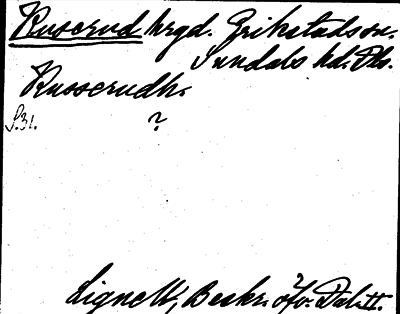 Ruserud hrgd. Grikstads sn.
Sundals hd. Dls.
Russerudh.
S. 31.
?
Lignell, Beskr. öfv. Dal. II.